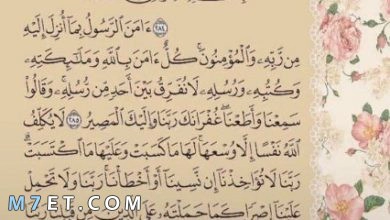 ٢٨٤ ءَامَنَ ٱلرَّسُولُ بِمَآ أُنزِلَ إِلَيْهِ
مِن رَّبِّهِۦ وَٱلْمُؤْمِنُونَ ۚ كُلٌّ ءَامَنَ بِٱللَّهِ وَمَلَٰٓئِكَتِهِۦ
وَكُتُبِهِۦ وَرُسُلِهِۦ لَا نُفَرِّقُ بَيْنَ أَحَدٍ مِّن رُّسُلِهِۦ ۚ وَقَالُوا۟
سَمِعْنَا وَأَطَعْنَا ۖ غُفْرَانَكَ رَبَّنَا وَإِلَيْكَ ٱلْمَصِيرُ ٢٨٥ لَا يُكَلِّفُ
ٱللَّهُ نَفْسًا إِلَّا وُسْعَهَا ۚ لَهَا مَا كَسَبَتْ وَعَلَيْهَا مَا ٱكْتَسَبَتْ ۗ
رَبَّنَا لَا تُؤَاخِذْنَآ إِن نَّسِينَآ أَوْ أَخْطَأْنَا ۚ رَبَّنَا وَلَا تَحْمِلْ
عَلَيْنَآ إِصْرًا كَمَا حَمَلْتَهُۥ عَلَى ٱلَّذِينَ مِن قَبْلِنَا ۚ رَبَّنَا
M7ET.COM